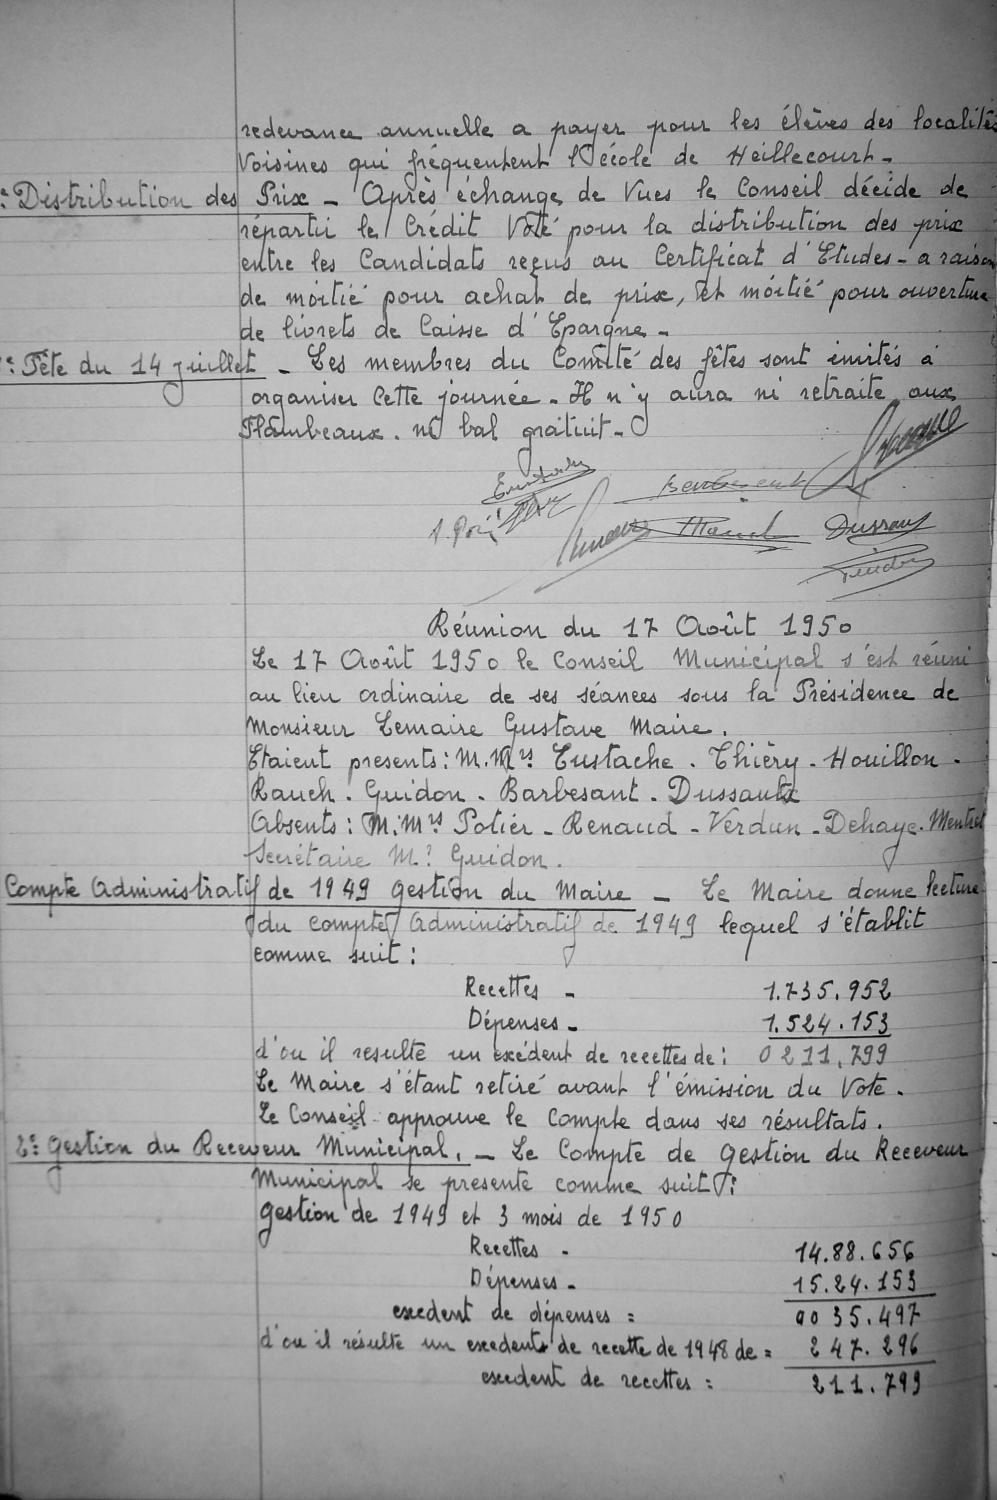 redevance annuelle a payer pour les élèves des localités
Voisines qui fréquentent l'école de Heillecourt -
: Distribution des Prix - Après échange de Vues le Conseil décide de
répartir le Crédit Voté pour la distribution des prix
entre les Candidats reçus au Certificat d'Etudes - a raison
de moitié pour achat de prix, et moitié pour ouverture
de livrets de Caisse d'Epargne -
: Fête du 14 juillet - Les membres du Comité des fêtes sont invités à
organiser Cette journée - Il n'y aura ni retraite aux
Flambeaux. ni bal gratuit -
Réunion du 17 Août 1950
Le 17 Août 1950 le Conseil Municipal s'est réuni
au lieu ordinaire de ses séances sous la Présidence de
Monsieur Lemaire Gustave Maire.
Etaient presents : M.Mrs Eustache - Thiéry - Houillon -
Rauch - Guidon - Barbesant - Dussaulx
Absents : M.Mrs Potier - Renaud - Verdun - Dehaye - Mentrel
Secrétaire Mr Guidon.
Compte Administratif de 1949 gestion du Maire - Le Maire donne lecture
du compte Administratif de 1949 lequel s'établit
comme suit :
Recettes - 1.735.952
Dépenses - 1.524.153
d'ou il resulte un exédent de recettes de : 0211.799
Le Maire s'étant retiré avant l'émission du Vote.
Le Conseil approuve le Compte dans ses résultats.
2: gestion du Receveur Municipal. - Le Compte de gestion du Receveur
Municipal se presente comme suit :
gestion de 1949 et 3 mois de 1950
Recettes - 14.88.656
Dépenses - 15.24.153
excedent de dépenses = 0035.497
d'ou il résulte un excedent de recette de 1948 de = 247.296
excedent de recettes : 211.799